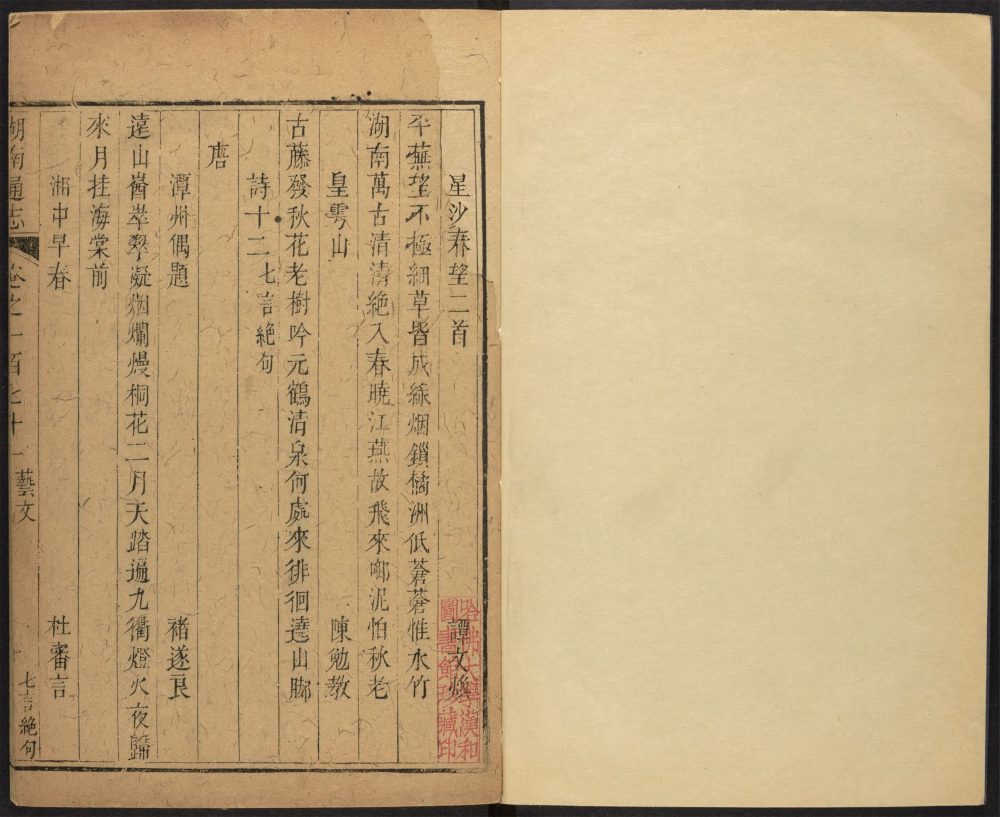 星沙春望二首 譚文煥
平蕪望不極細草皆成綠烟鎖橘洲低蒼蒼惟水竹
湖南萬古清清絶入春曉江燕故飛來啣泥怕秋老
皇雩山 陳勉教
古藤發秋花老樹吟元鶴清泉何處來徘徊遶山脚
詩十二七言絶句
唐
潭州偶題 褚遂良
遠山崷崒翠凝烟爛熳桐花二月天踏遍九衢燈火夜歸
來月挂海棠前
湘中早春 杜審言
湖南通志 卷之一百七十一 藝文 七言絶句
哈佛大學漢和
圖書館珍藏印